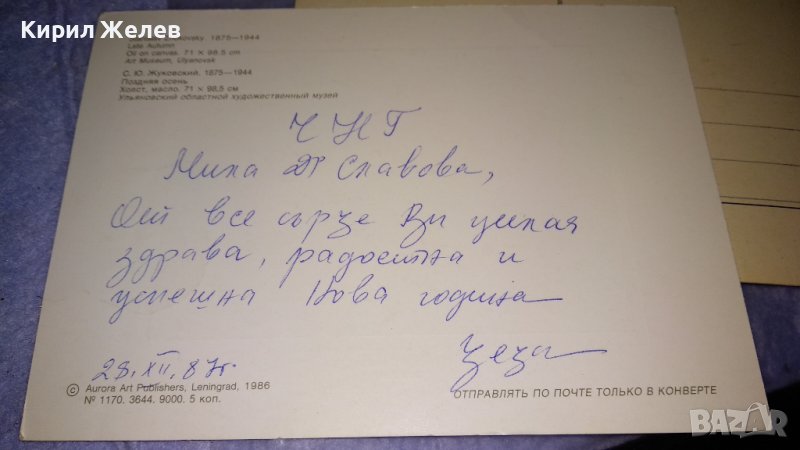 Кирил Желев
ovsky. 1875—1944
Late Autumn
Oil on canvas. 71 × 98.5 cm
Art Museum, Ulyanovsk
С. Ю. Жуковский. 1875—1944
Поздняя осень
Холст, масло. 71 × 98,5 см
Ульяновский областной художественный музей
ЧНГ
Мила Др Славова,
От все сърце Ви желая
здрава, радостна и
успешна Нова година
Цеца
28.XII.87г.
© Aurora Art Publishers, Leningrad, 1986
№ 1170. 3644. 9000. 5 коп.
ОТПРАВЛЯТЬ ПО ПОЧТЕ ТОЛЬКО В КОНВЕРТЕ
BAZAR
bazar.bg